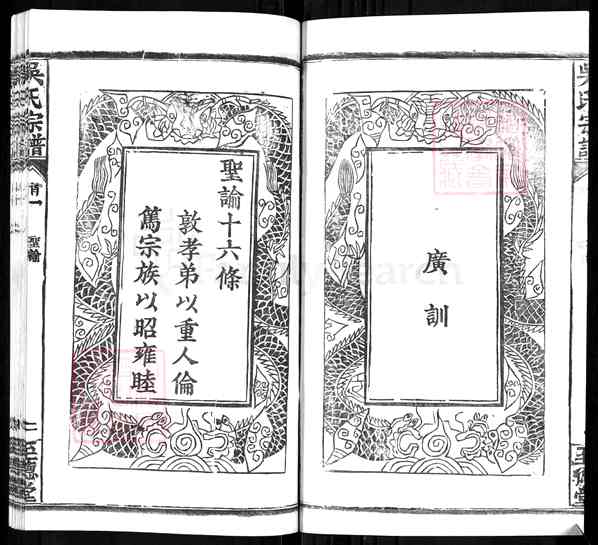 廣訓
聖諭十六條
敦孝弟以重人倫
篤宗族以昭雍睦
吳氏宗譜
首一
聖諭
吳氏宗譜